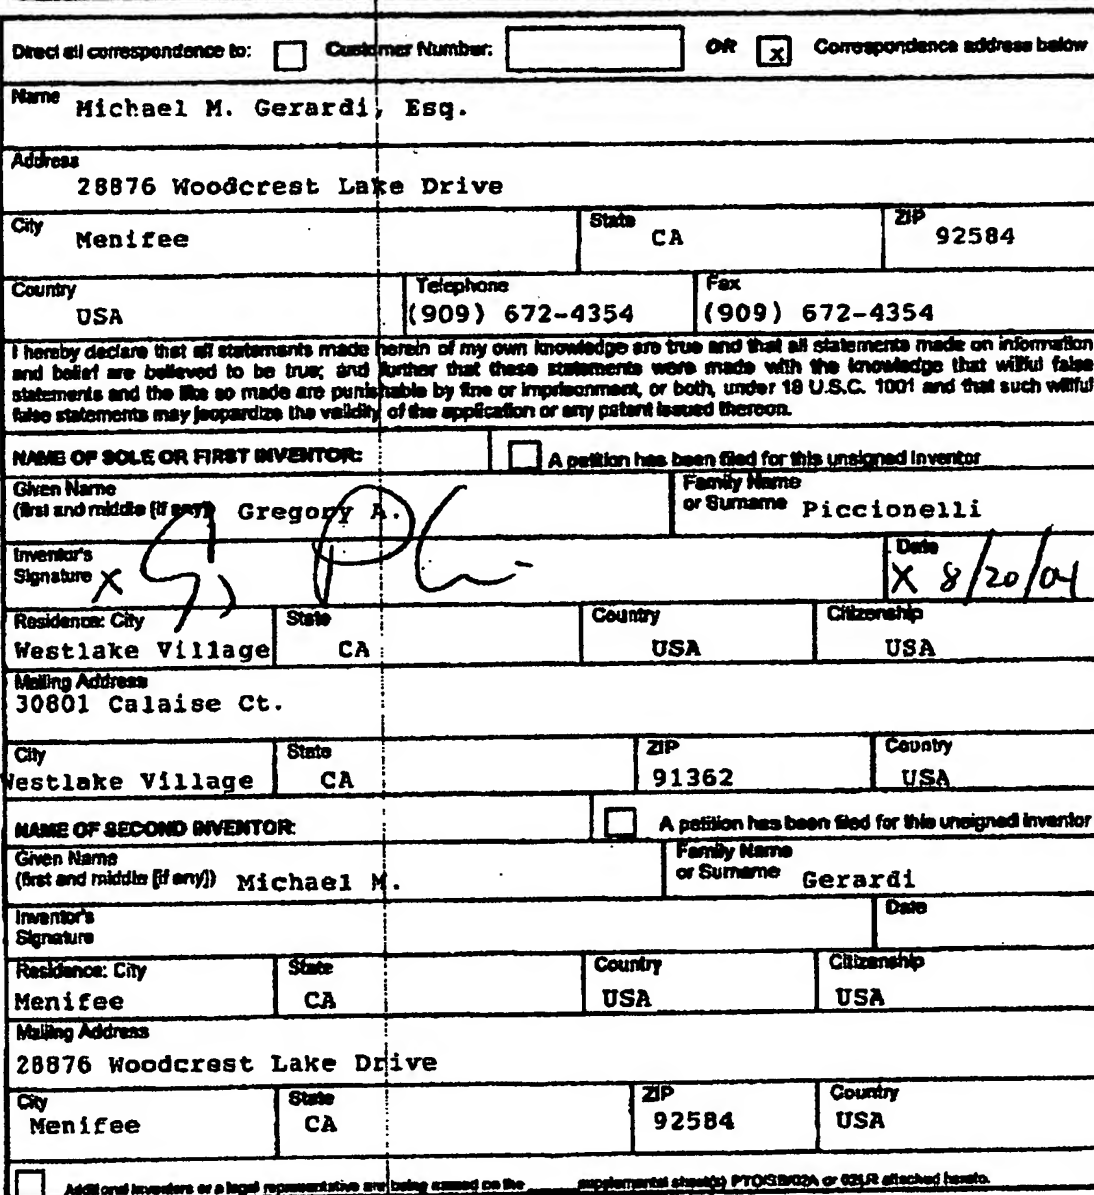 Direct all correspondence to: Customer Number: OR x Correspondence address below
Name
Michael M. Gerardi, Esq.
Address
28876 Woodcrest Lake Drive
City State ZIP
Menifee CA 92584
Country Telephone Fax
USA (909) 672-4354 (909) 672-4354
I hereby declare that all statements made herein of my own knowledge are true and that all statements made on information
and belief are believed to be true; and further that these statements were made with the knowledge that willful false
statements and the like so made are punishable by fine or imprisonment, or both, under 18 U.S.C. 1001 and that such willful
false statements may jeopardize the validity of the application or any patent issued thereon.
NAME OF SOLE OR FIRST INVENTOR: A petition has been filed for this unsigned inventor
Given Name Family Name
(first and middle [if any]) Gregory A. or Surname Piccionelli
Inventor's Date
Signature X X 8/20/04
Residence: City State Country Citizenship
Westlake Village CA USA USA
Mailing Address
30801 Calaise Ct.
City State ZIP Country
Westlake Village CA 91362 USA
NAME OF SECOND INVENTOR: A petition has been filed for this unsigned inventor
Given Name Family Name
(first and middle [if any]) Michael M. or Surname Gerardi
Inventor's Date
Signature
Residence: City State Country Citizenship
Menifee CA USA USA
Mailing Address
28876 Woodcrest Lake Drive
City State ZIP Country
Menifee CA 92584 USA
Additional inventors or a legal representative are being named on the supplemental sheet(s) PTO/SB/02A or 02LR attached hereto.